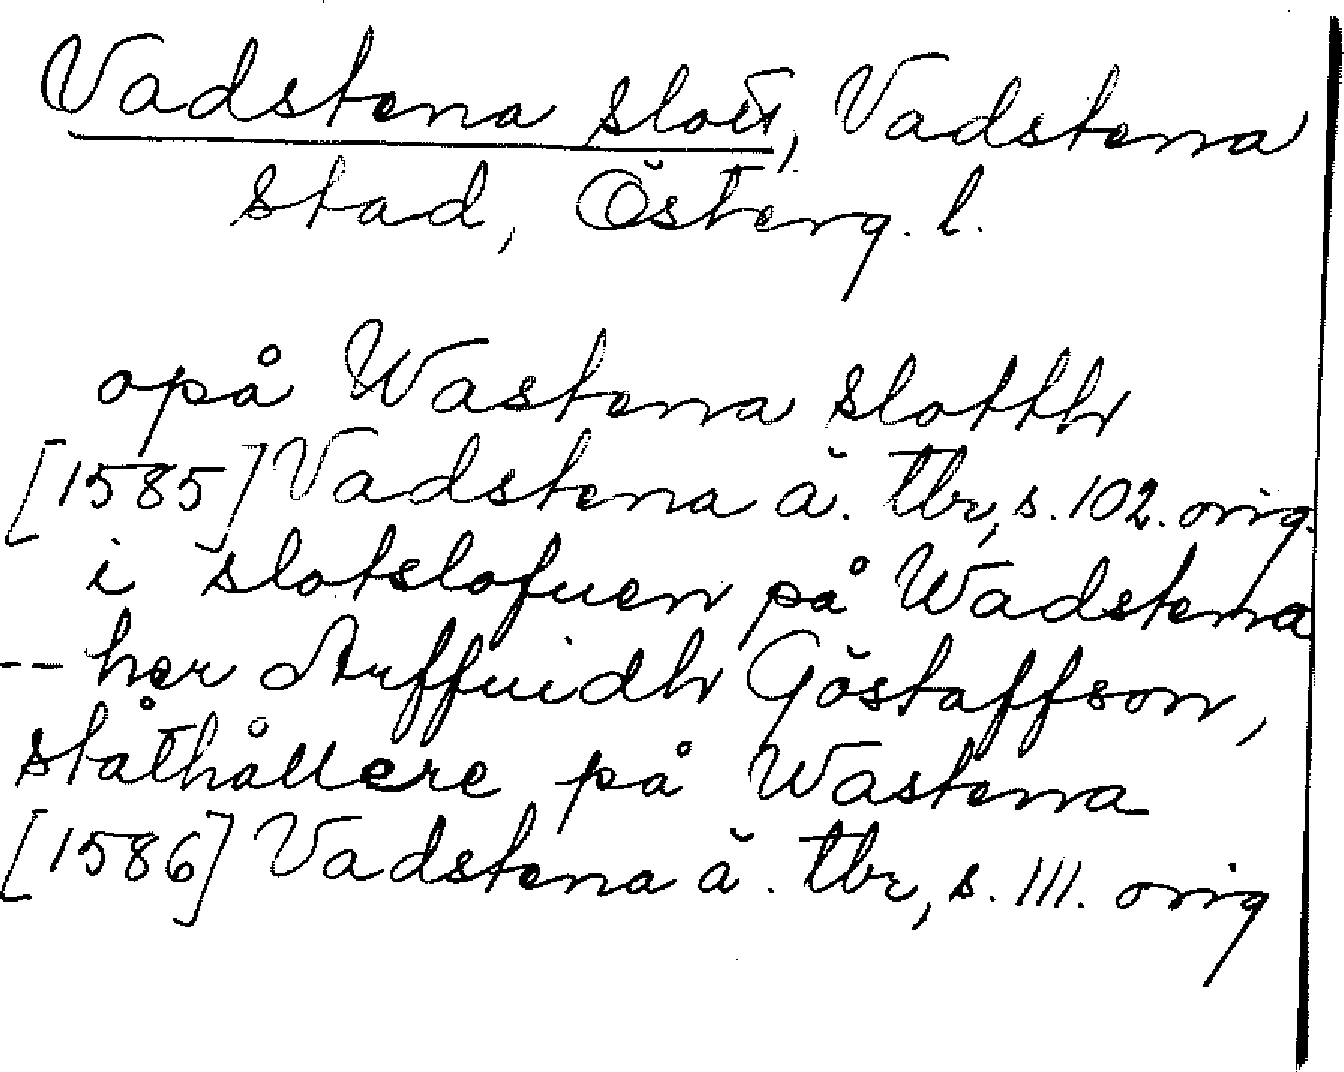 Vadstena slott, Vadstena
stad, Österg. l.
opå Wastena slotth
[1585] Vadstena ä. tbr, s. 102. orig.
i slotslofuen på Wadstena
-- her Arffuidh Göstaffson,
ståthållere på Wastena
[1586] Vadstena ä. tbr, s. 111. orig